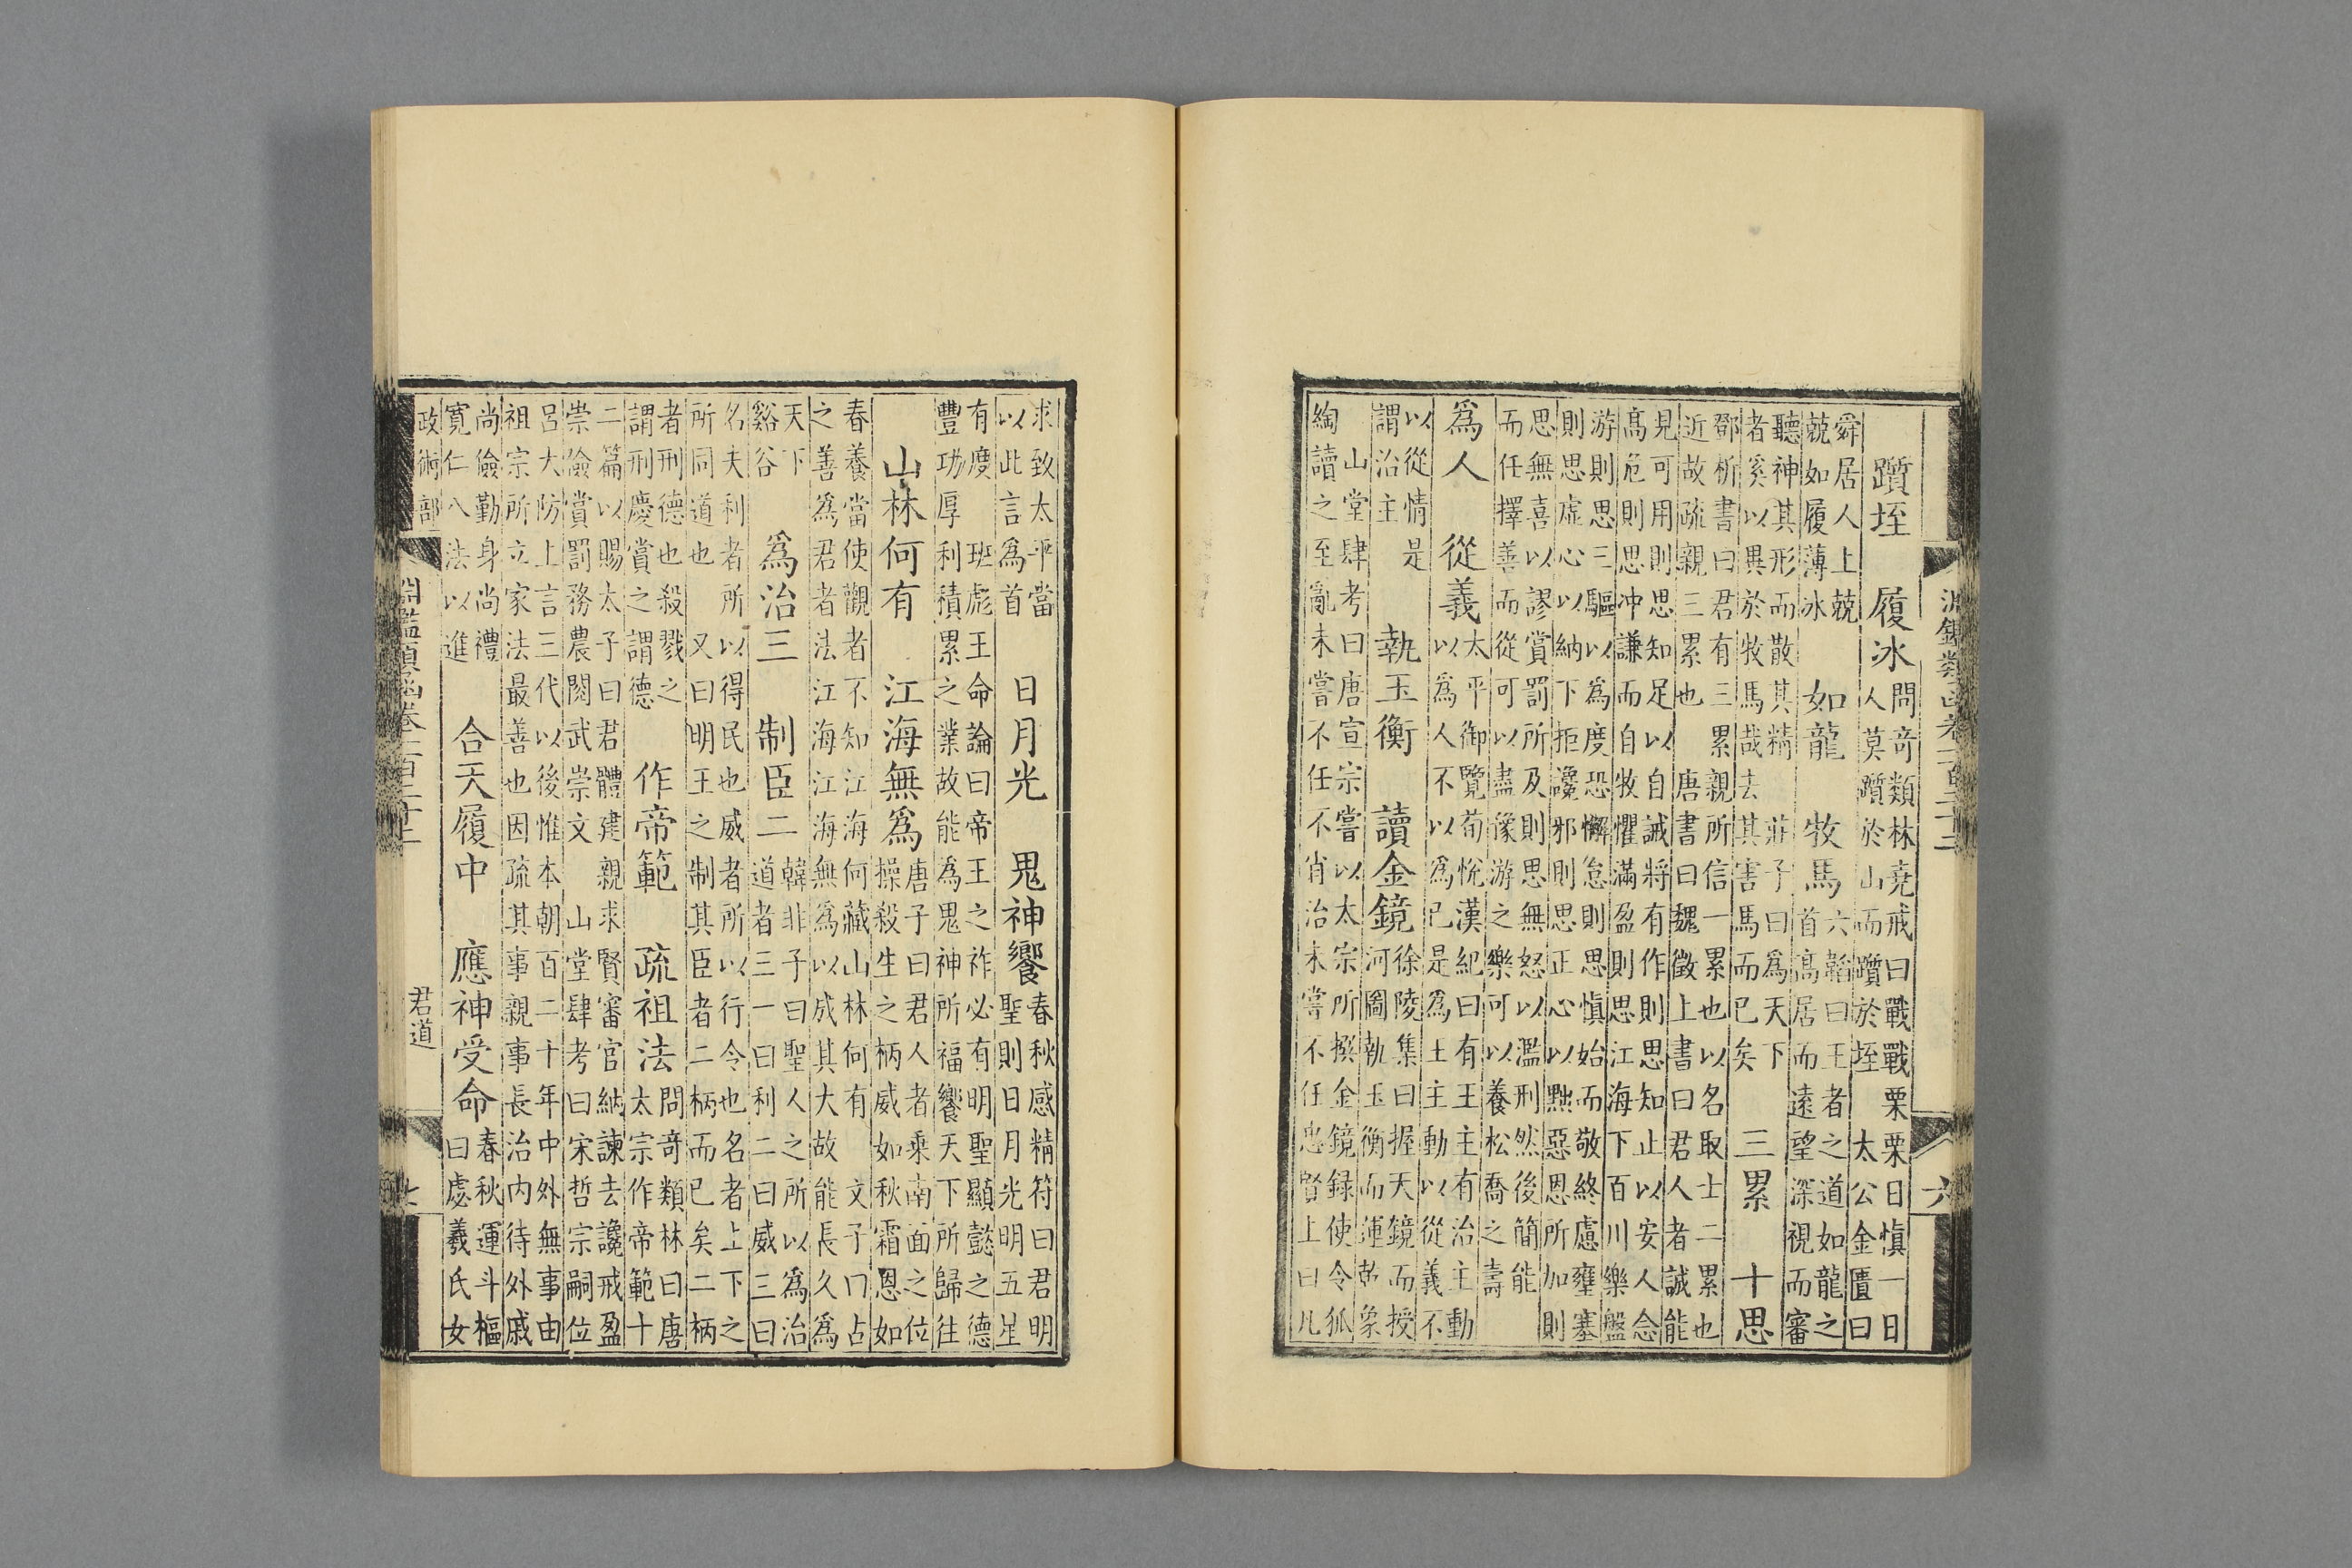 淵鑑類函卷一百二十三
六
躓垤
履冰
問奇類林堯戒曰戰戰栗栗日慎一日
人莫躓於山而躓於垤　太公金匱曰
舜居人上兢
兢如履薄冰
如龍
牧馬
六韜曰王者之道如龍之
首高居而遠望深視而審
聽神其形而散其精　莊子曰為天下
者奚以異於牧馬哉去其害馬而已矣
三累
十思
鄧析書曰君有三累親所信一累也以名取士二累也
近故疏親三累也　唐書曰魏徵上書曰君人者誠能
見可用則思知足以自誡將有作則思知止以安人念
高危則思冲謙而自牧懼滿盈則思江海下百川樂盤
游則思三驅以為度恐懈怠則思慎始而敬終慮壅塞
則思虛心以納下拒讒邪則思正心以黜惡恩所加則
思無喜以謬賞罰所及則思無怒以濫刑然後簡能
而任擇善而從可以盡豫游之樂可以養松喬之壽
為人
從義
太平御覽荀悅漢紀曰有王主有治主動
以為人不以為己是為王主動以從義不
以從情是
謂治主
執玉衡
讀金鏡
徐陵集曰握天鏡而授
河圖執玉衡而運乾象
山堂肆考曰唐宣宗嘗以太宗所撰金鏡録使令狐
綯讀之至亂未嘗不任不肖治未嘗不任忠賢上曰凡
求致太平當
以此言為首
日月光
鬼神饗
春秋感精符曰君明
聖則日月光明五星
有度　班彪王命論曰帝王之祚必有明聖顯懿之德
豐功厚利積累之業故能為鬼神所福饗天下所歸往
山林何有
江海無為
唐子曰君人者乘南面之位
操殺生之柄威如秋霜恩如
春養當使觀者不知江海何藏山林何有　文子曰占
之善為君者法江海江海無為以成其大故能長久為
天下
谿谷
為治三
制臣二
韓非子曰聖人之所以為治
道者三一曰利二曰威三曰
名夫利者所以得民也威者所以行令也名者上下之
所同道也　又曰明王之制其臣者二柄而已矣二柄
者刑德也殺戮之
謂刑慶賞之謂德
作帝範
疏祖法
問奇類林曰唐
太宗作帝範十
二篇以賜太子曰君體建親求賢審官納諫去讒戒盈
崇儉賞罰務農閱武崇文　山堂肆考曰宋哲宗嗣位
呂大防上言三代以後惟本朝百二十年中外無事由
祖宗所立家法最善也因疏其事親事長治内待外戚
尚儉勤身尚禮
寬仁八法以進
合天履中
應神受命
春秋運斗樞
曰虙羲氏女
政術部
淵鑑類函卷一百二十三
君道
七